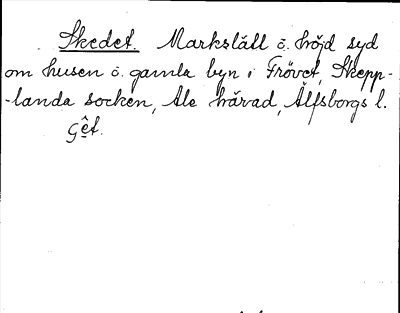 Skedet. Markslätt o. höjd syd
om husen o. gamla byn i Frövet, Skepp-
-landa socken, Ale härad, Älfsborgs l.
Gêt.